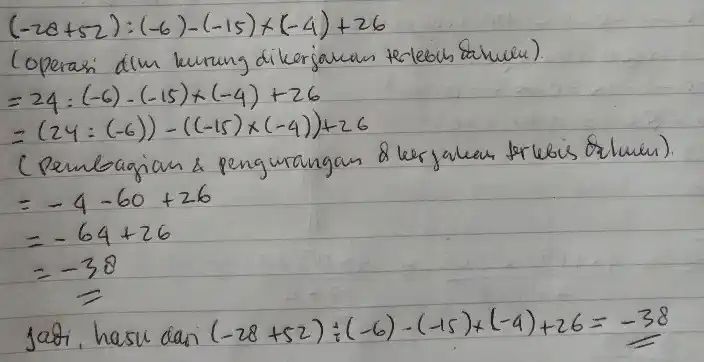 (-28+52):(-6)-(-15)×(-4)+26
(operasi dlm kurung dikerjakan terlebih dahulu).
= 24:(-6)-(-15)×(-4)+26
= (24:(-6))-((-15)×(-4))+26
(pembagian & pengurangan dikerjakan terlebih dahulu).
= -4-60+26
= -64+26
= -38
Jadi, hasil dari (-28+52)÷(-6)-(-15)×(-4)+26 = -38